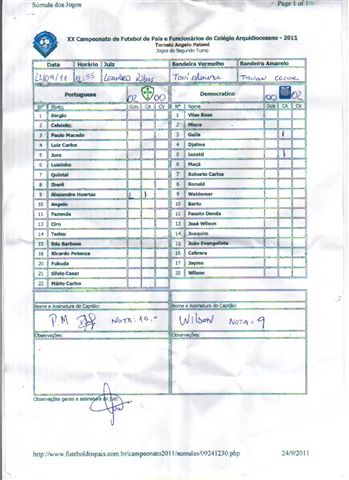 Súmula dos Jogos Page 1 of 1
XX Campeonato de Futebol de Pais e Funcionários do Colégio Arquidiocesano - 2011
Torneio Angelo Palumé
Jogos do Segundo Turno
Data Horário Juiz Bandeira Vermelho Bandeira Amarelo
Portuguesa 02 00 Democratico 00 02
Nº Nome Gols CA CV Nº Nome Gols CA CV
1 Sérgio 1 Vilas Boas
2 Celsinho 2 Miura
3 Paulo Macedo 3 Guila I
4 Luiz Carlos 4 Djalma
5 Jura 5 Iazetti I
6 Luisinho 6 Maçã
7 Quintal 7 Roberto Carlos
8 Iberê 8 Ronald
9 Alexandre Huertas 9 Waldemar
10 Angelo 10 Barto
11 Fazenda 11 Fausto Denda
12 Ciro 13 José Wilson
14 Tadeu 14 Joaquim
15 Edu Barbosa 15 João Evangelista
16 Ricardo Potenza 16 Cabrera
20 Fukuda 17 Jayme
21 Silvio Cesar 20 Wilson
22 Mário Carlos
Nome e Assinatura do Capitão: Nome e Assinatura do Capitão:
P.M NOTA: 10.- Wilson NOTA = 9
Observações: Observações:
Observações gerais e assinatura do Juiz:
http://www.futeboldospais.com.br/campeonato2011/sumulas/09241230.php 24/9/2011